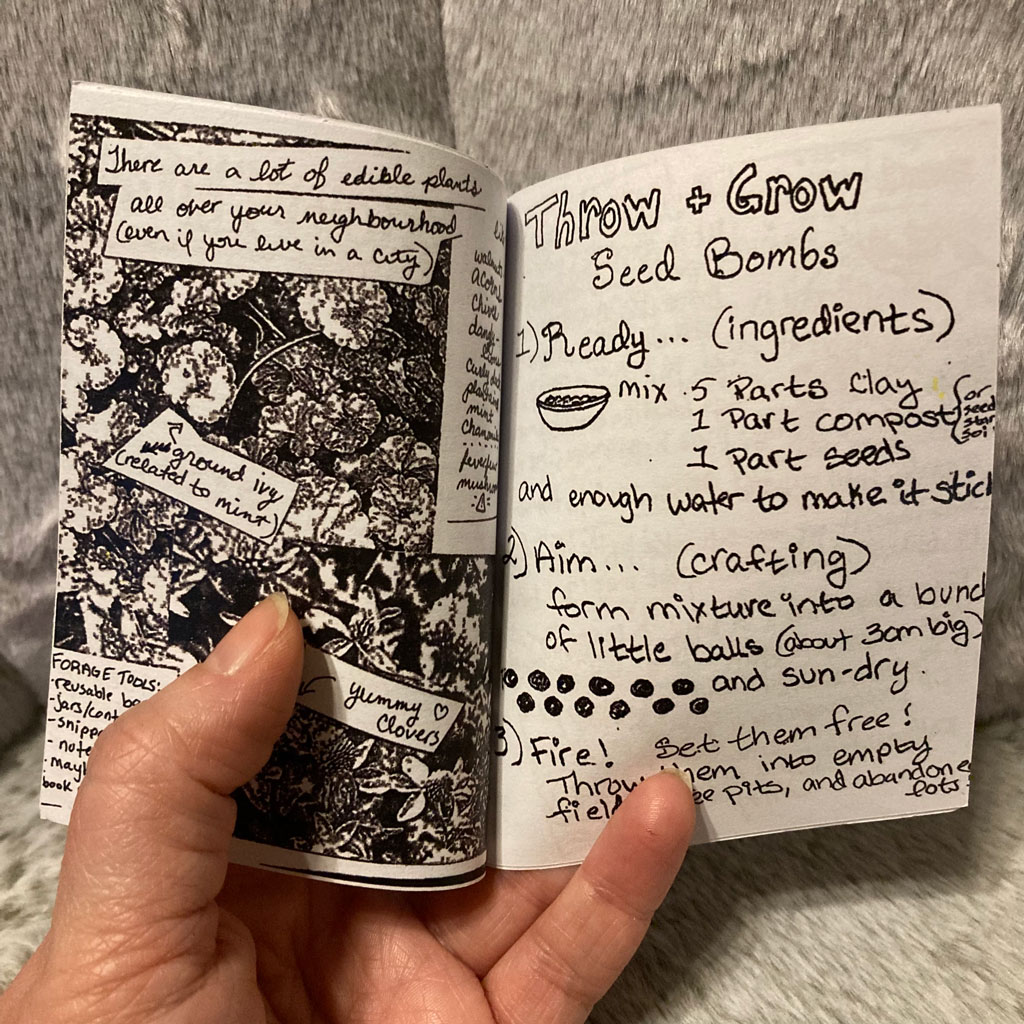 There are a lot of edible plants
all over your neighbourhood
(even if you live in a city)
walnuts
acorns
chive
dande-
lions
mint
ground ivy
(related to mint)
FORAGE TOOLS:
-reusable
-jars/
book
yummy ♡
Clovers
Throw + Grow
Seed Bombs
1) Ready... (ingredients)
mix 5 Parts Clay
1 Part compost (or
seed
1 Part seeds
and enough water to make it
2) Aim... (crafting)
form mixture into a
of little balls (about 3cm big)
and sun-dry.
3) Fire! Set them free!
Throw them into empty
pits, and